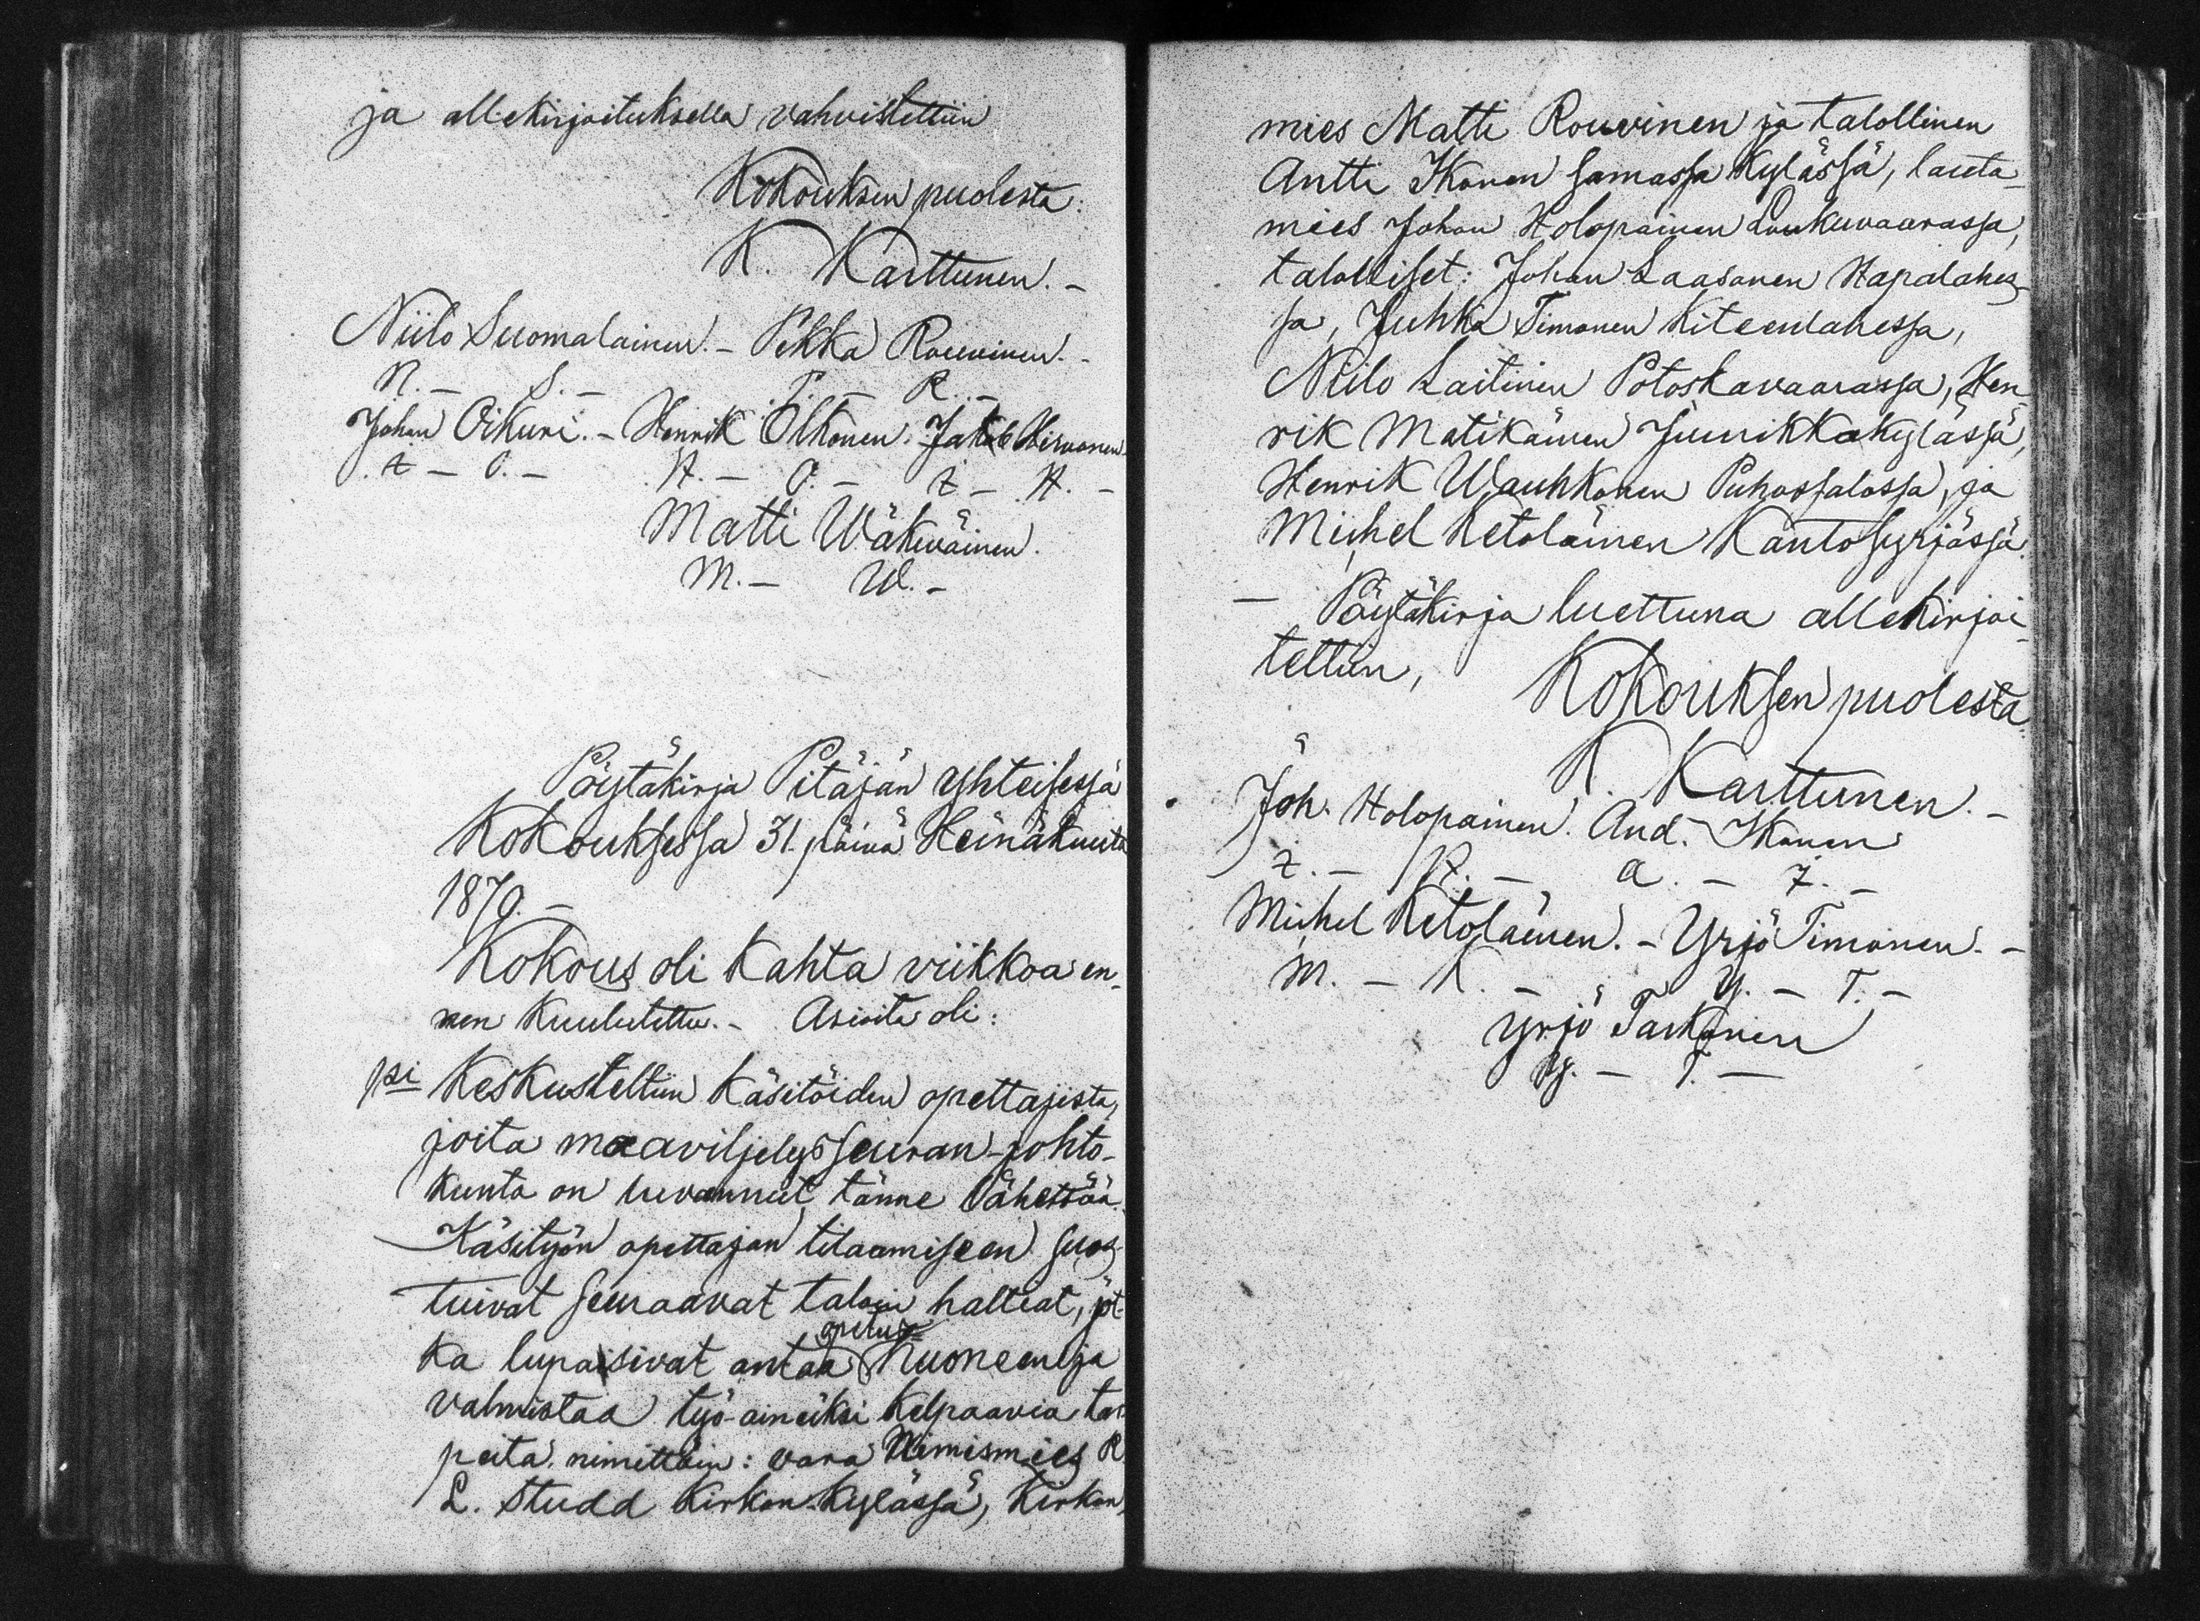 ja allekirjoituksella vahvistettiin
Kokouksen puolesta:
K. Karttunen. -
Niilo Suomalainen. - Pekka Rouvinen. -
N. - S. - P. - R. -
Johan Oikuri. - Henrik Olkonen. Jakob Hirvonen
I - O. - H. - O. - I - H. -
Matti Wäkiväinen.
M. - W. -
Pöytäkirja Pitäjän yhteisessä
Kokouksessa 31 päivä Heinäkuuta
1870. -
Kokous oli kahta viikkoa en-
nen kuulutettu. - Asioita oli:
1si Keskusteltiin käsitöiden opettajista,
joita maaviljelysseuran-johto-
kunta on luvannut tänne lähettää.
Käsityön opettajan tilaamiseen suos-
tuivat seuraavat talon haltiat, jot-
ka lupaisivat antaa opetus- huoneen ja
valmistaa työ-aineiksi kelpaavia tar-
peita. nimittäin: vara Nimismies R
L. Studd Kirkon-kylässä, Kirkon,
mies Matti Rouvinen ja talollinen
Antti Ikonen samassa kylässä, lauta-
mies Johan Holopainen Loukuvaarassa,
talolliset: Johan Laasonen Hapalahes-
sa, Juhka Timonen Kiteenlahessa,
Niilo Laitinen Potoskavaarassa, Hen-
rik Matikainen Juurikkakylässä,
Henrik Wauhkonen Puhossalossa, ja
Michel Ketoläinen Kantosyrjässä.
- Pöytäkirja luettuna allekirjoi-
tettiin,
Kokouksen puolesta
K. Karttunen. -
Joh. Holopainen. And. Ikonen
I. - H. - A. - I. -
Michel Ketoläinen. - Yrjö Timonen. -
M. - K. - Y. - T. -
Yrjö Tarkonen
Y. - T. -